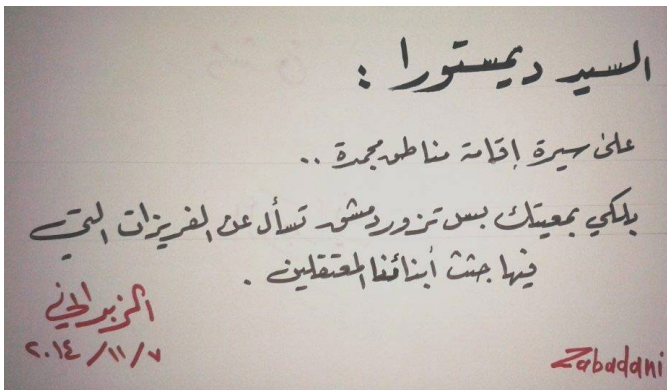 السيد ديمستورا :
على سيرة إقامة مناطق مجمدة ..
بلكي بمعيتك بس تزور دمشق تسأل عن الفريزات التي
فيها جثث أبنائنا المعتقلين .
الزبداني
٢٠١٤/١١/٧
Zabadani